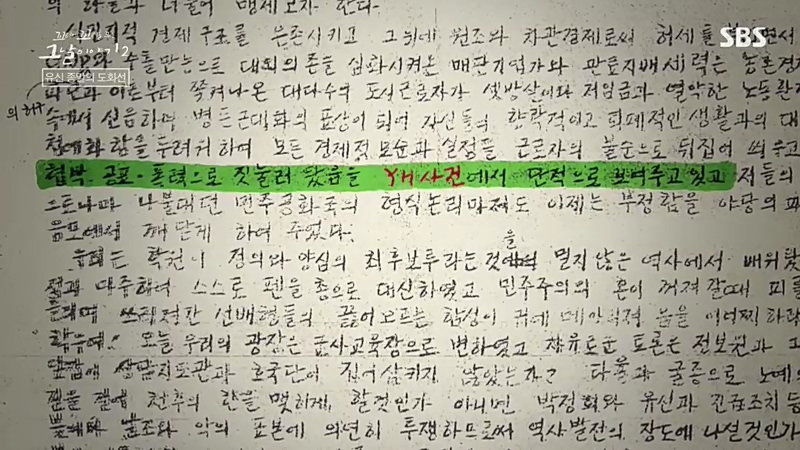 꼬리에 꼬리를 무는
그날 이야기 2
유신 종말의 도화선
SBS
경제구조를 온존시키고 그 위에 원조와 차관경제로써 허세를
수출만능으로 대외의존을 심화시켜온 매판기업가와 관료지배세력은 농촌경
의해
쫓겨나온 대다수의 도시근로자가 셋방살이와 저임금과 열악한 노동환
속에서 신음하며 병든근대화의 표상이 되어 자신들의 향락적이고 퇴폐적인 생활과의 대
두려워하여 모든 경제적 모순과 실정을 근로자의 불순으로 뒤집어 씌우고
협박. 공포. 폭력으로 짓눌러 왔음을 YH사건에서 단적으로 보여주고 있고 저들의
나불대던 민주공화국의 형식논리마저도 이제는 부정함을 야당의 파
깨닫게 하여 주었다.
을
우리는 학원이 정의와 양심의 최후보루라는 것 멀지않은 역사에서 배워왔
스스로 펜을 총으로 대신하였고 민주주의의 혼이 꺼져갈때 피를
쓰러져간 선배형들의 끓어오르는 함성이 귀에 메아리쳐 옴을 어찌하랴
오늘 우리의 광장은 군사교육장으로 변하였고 자유로운 토론은 정보원과 그
상담지도관과 호국단이 집어삼키지 않았는가? 타율과 굴종으로 노예의
천추의 한을 맺히게 할것인가 아니면 박정희와 유신과 긴급조치등
불조와 악의 표본에 의연히 투쟁하므로써 역사발전의 장도에 나설것인가